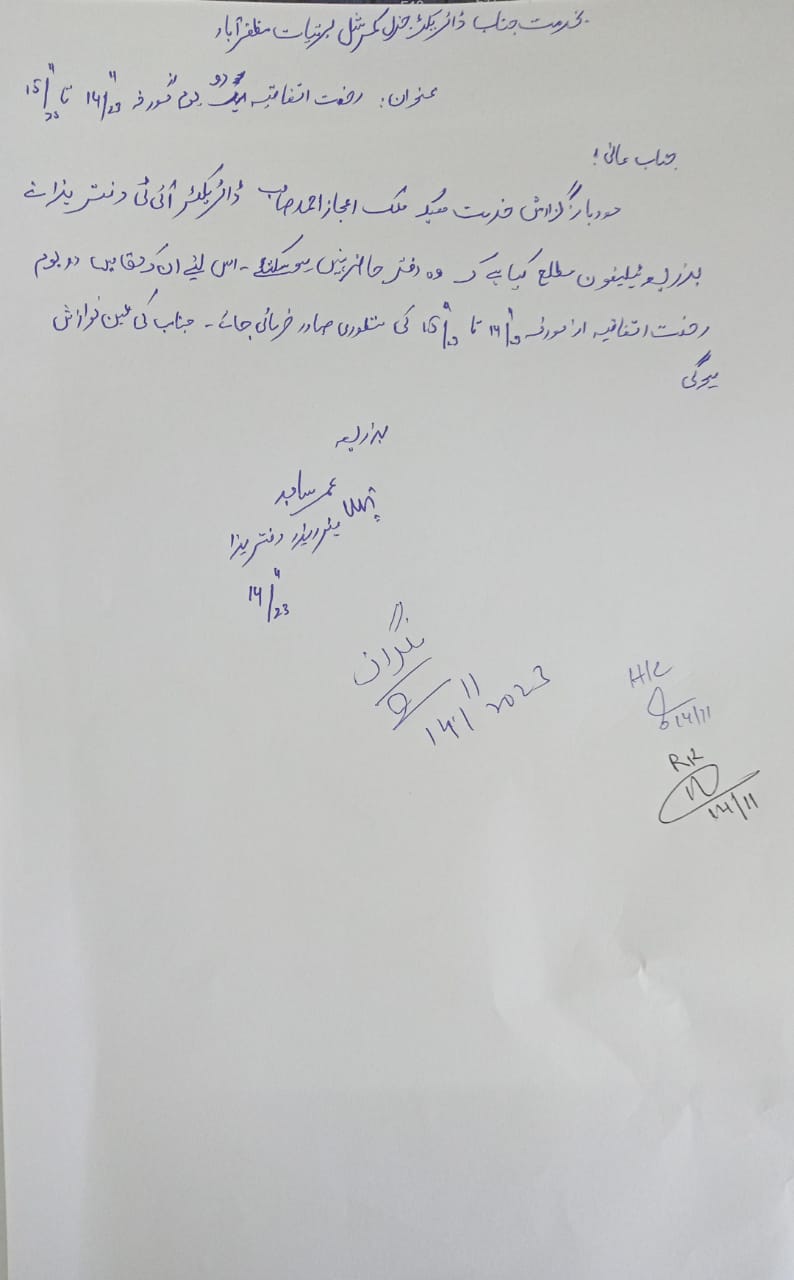 بخدمت جناب ڈائریکٹر جنرل کمرشل برقیات مظفرآباد
عنوان: رخصت اتفاقیہ دو یوم مورخہ 14/11/23 تا 15/11/23
جناب عالی!
مودبانہ گزارش خدمت ہیکہ ملک اعجاز احمد صاحب ڈائریکٹر آئی ٹی دفتر ہذا نے
بذریعہ ٹیلیفون مطلع کیا ہے کہ وہ دفتر حاضر نہیں ہو سکتے۔ اس لئے ان کے حق میں دو یوم
رخصت اتفاقیہ از مورخہ 14/11/23 تا 15/11/23 کی منظوری صادر فرمائی جائے۔ جناب کی عین نوازش
ہوگی
بذریعہ
عمر ساجد
دفتر ہذا
14/11/23
نگران
14/11 2023
H/C
14/11
RK
14/11